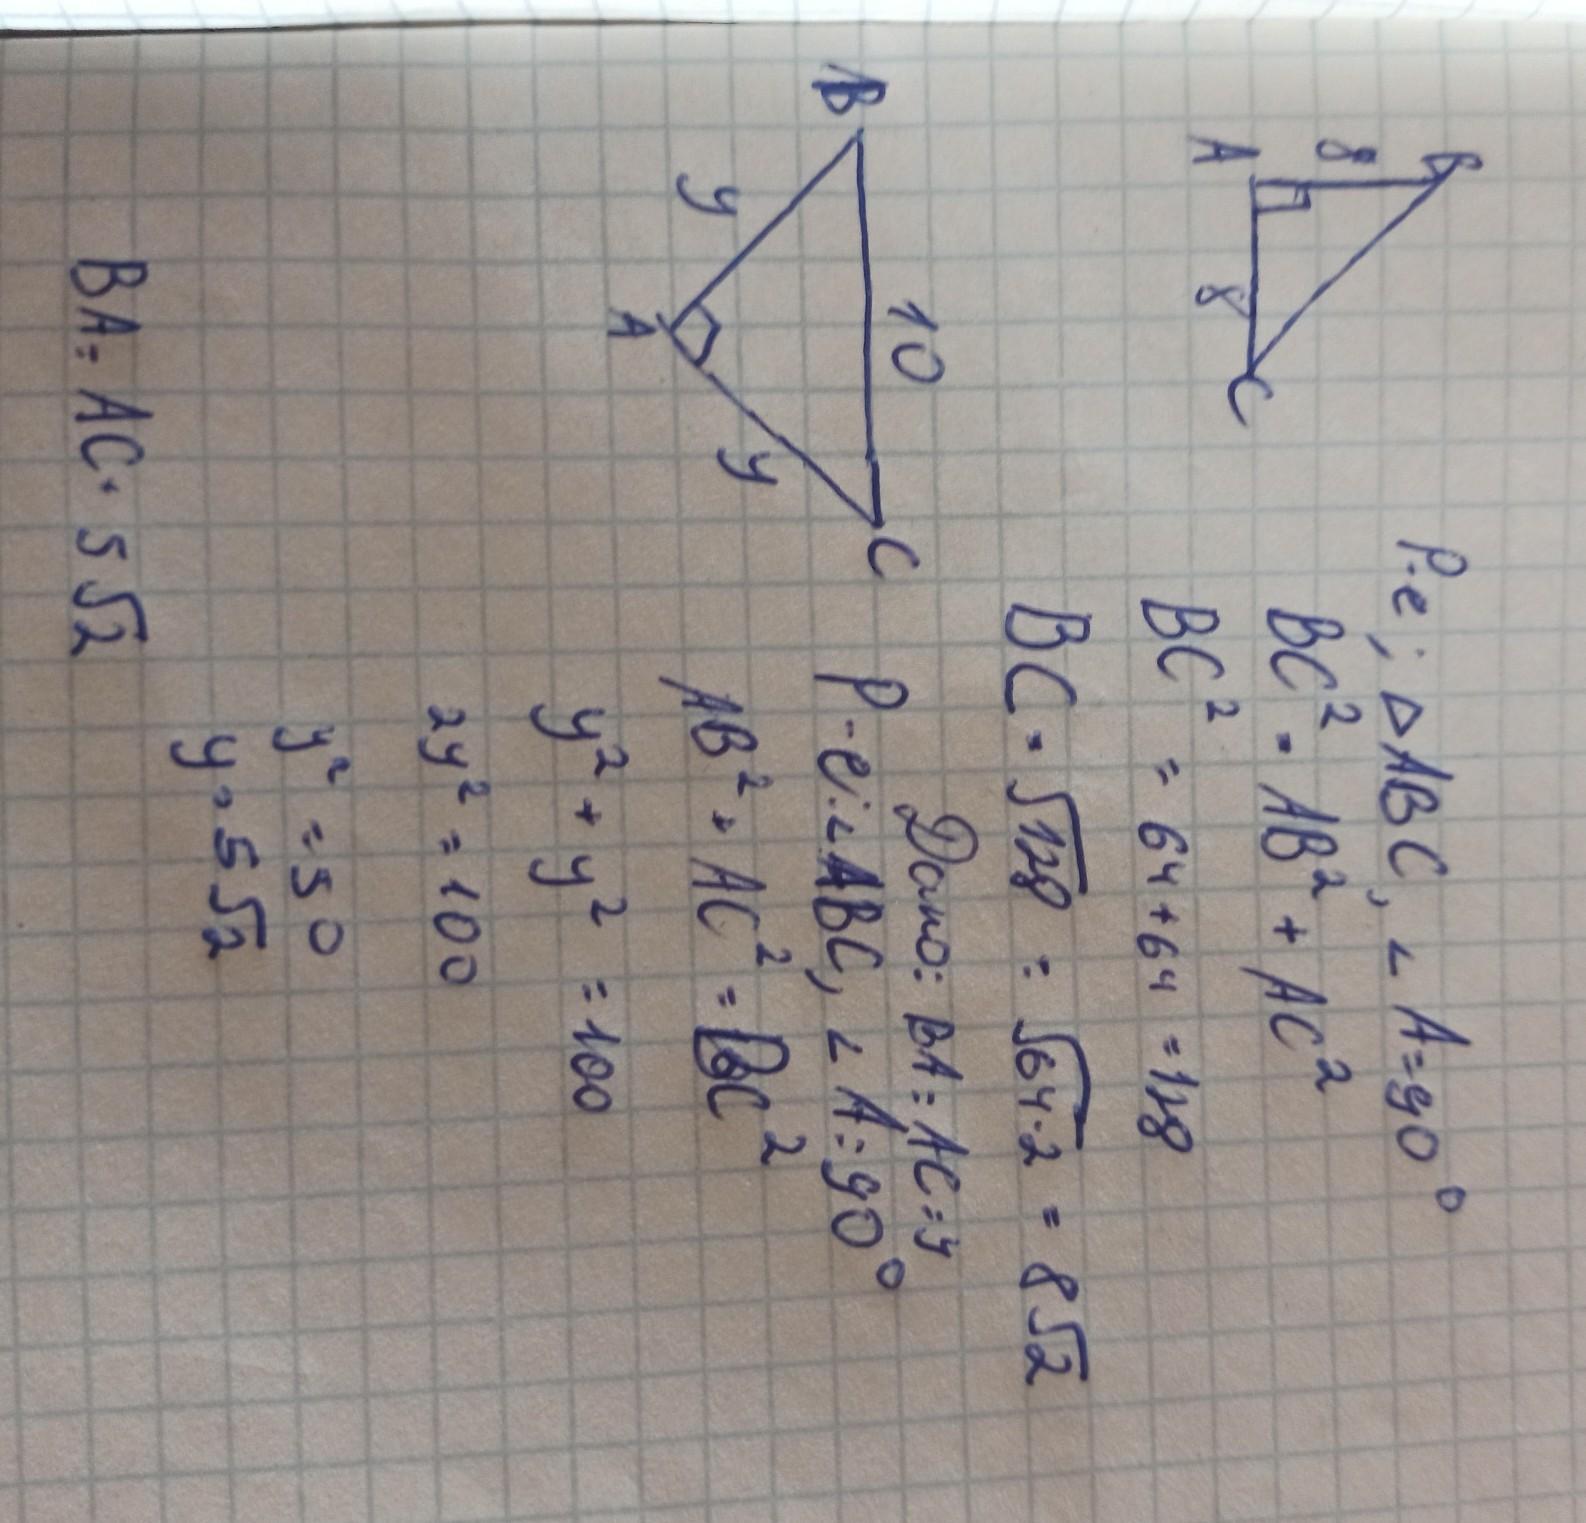 B
8
A
8
C
Р-е; △ABC, ∠A=90°
BC² = AB² + AC²
BC² = 64+64 = 128
BC = √128 = √64·2 = 8√2
Дано: BA = AC = y
B
10
C
y
y
A
Р-е: ∠ABC, ∠A = 90°
AB² + AC² = BC²
y² + y² = 100
2y² = 100
y² = 50
y = 5√2
BA = AC = 5√2